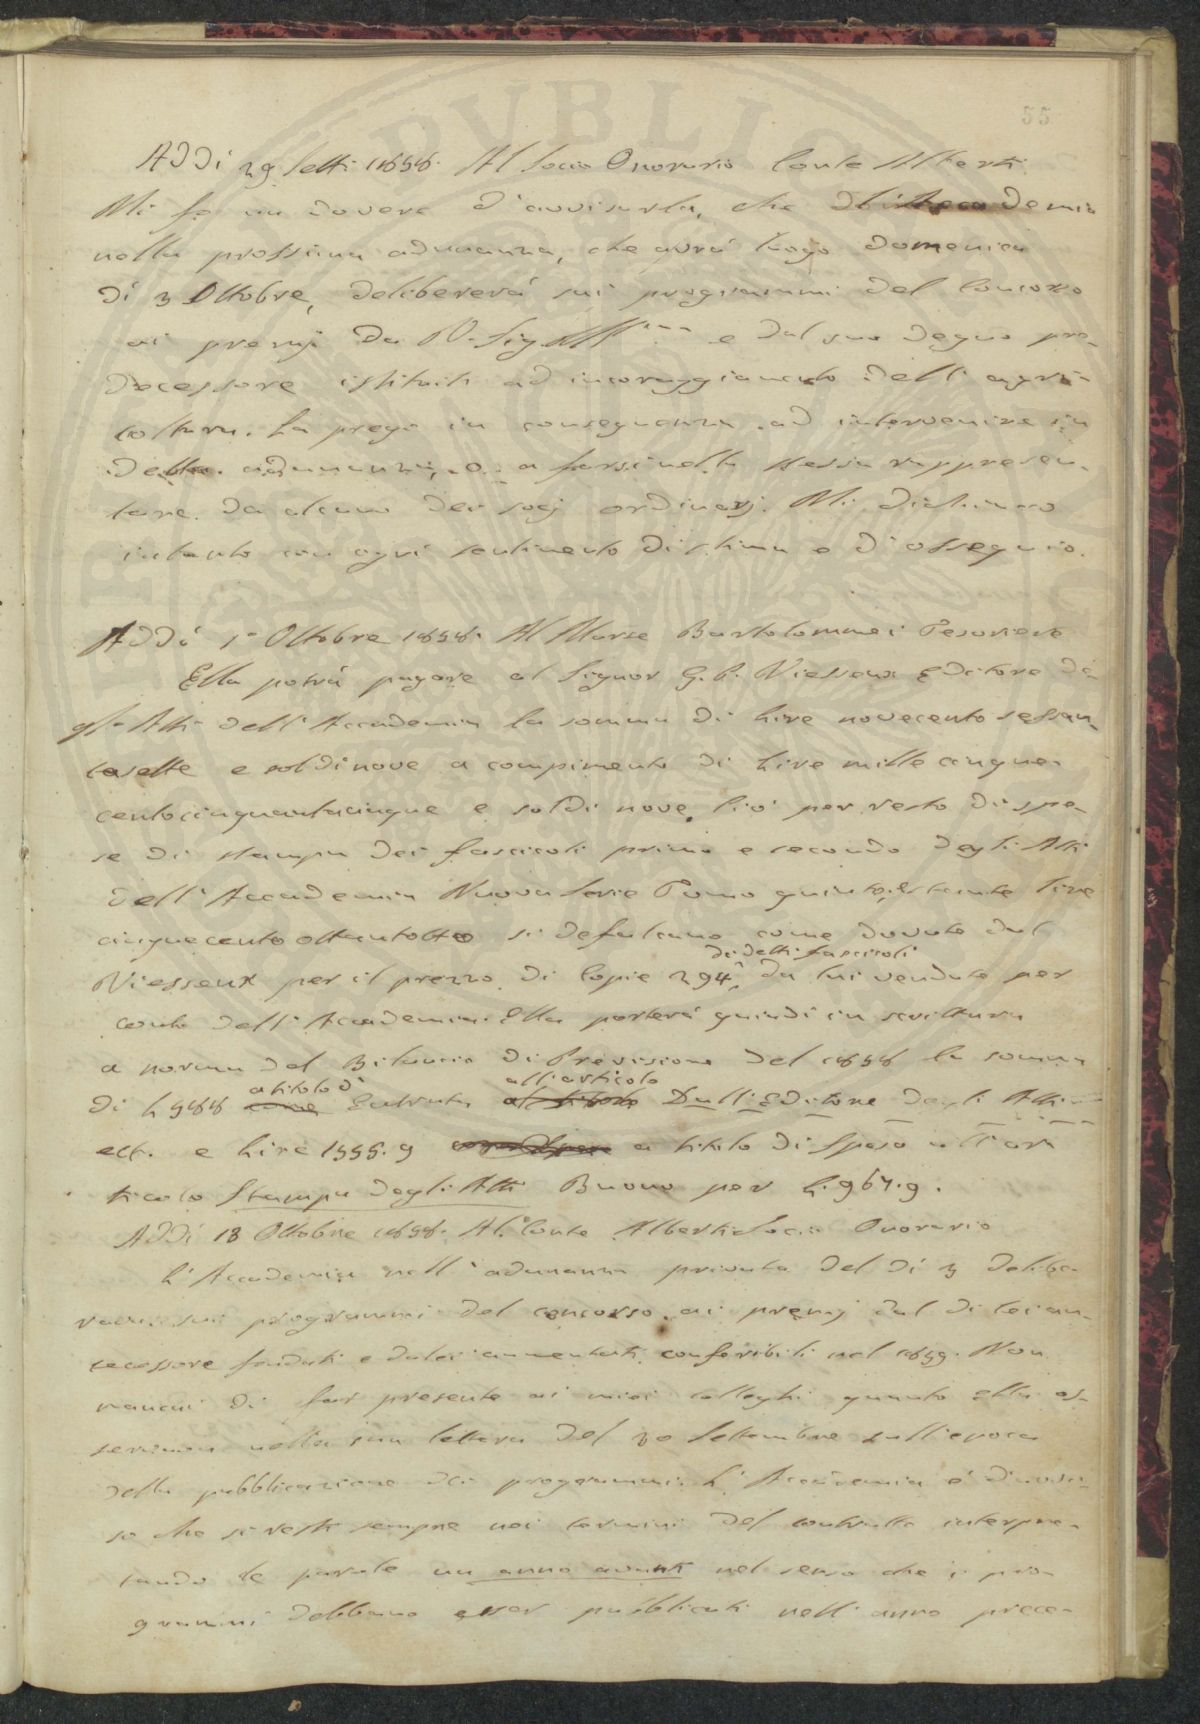 55
Addì 29 Sette 1858. Al Socio Onorario Conte Alberti
Mi fo un dovere d'avvisarla, che demia
nella prossima adunanza, che avrà luogo domenica
dì 3 Ottobre, delibererà sui programmi del Concorso
ai premj da V. Sig. Ill.ma e dal suo degno pre-
decessore istituiti ad incoraggiamento dell'agri-
coltura. La prego in conseguenza ad intervenire in
detta adunanza, o a farsi nella stessa rappresen-
tare da alcuno dei socj ordinarj. Mi dichiaro
intanto con ogni sentimento di stima e d'ossequio.
Addì 1° Ottobre 1858. Al Marse Bartolommei Tesoriere
Ella potrà pagare al Signor G. P. Viesseux Editore de-
gl. Atti dell'Accademia la somma di Lire novecento sessan-
tasette e soldi nove a compimento di Lire mille cinque-
centocinquantacinque e soldi nove. Ciò per resto di spe-
se di stampa dei fascicoli primo e secondo degli Atti
dell'Accademia Nuova Serie Tomo quinto, lire
cinquecento ottantotto si defalcano come dovute dal
di detti fascicoli
Viesseux per il prezzo di Copie 294, da lui vendute per
conto dell'Accademia. Ella porterà quindi in scrittura
a norma del Bilancio di Previsione del 1858 la somma
a titolo di all'articolo
di L 588 come Entrata al titolo Dall'Editore degli Atti
ect. e Lire 1555.9 a titolo di Spesa all'ar
ticolo Stampa degli Atti Buono per L. 967.9.
Addì 13 Ottobre 1858. Al Conte Alberti Socio Onorario
L'Accademia nell'adunanza privata del dì 3 delibe-
rava sui programmi del concorso ai premj dal di lei an-
tecessore fondati e da lei aumentati conferibili nel 1859. Non
mancai di far presente ai miei colleghi quanto Ella os-
servava nella sua lettera del 30 Settembre sull'epoca
della pubblicazione dei programmi. L'Accademia è d'avvi-
so che si resti sempre nei termini del contratto interpre-
tando le parole un anno avanti nel senso che i pro-
grammi debbano esser pubblicati nell'anno prece-